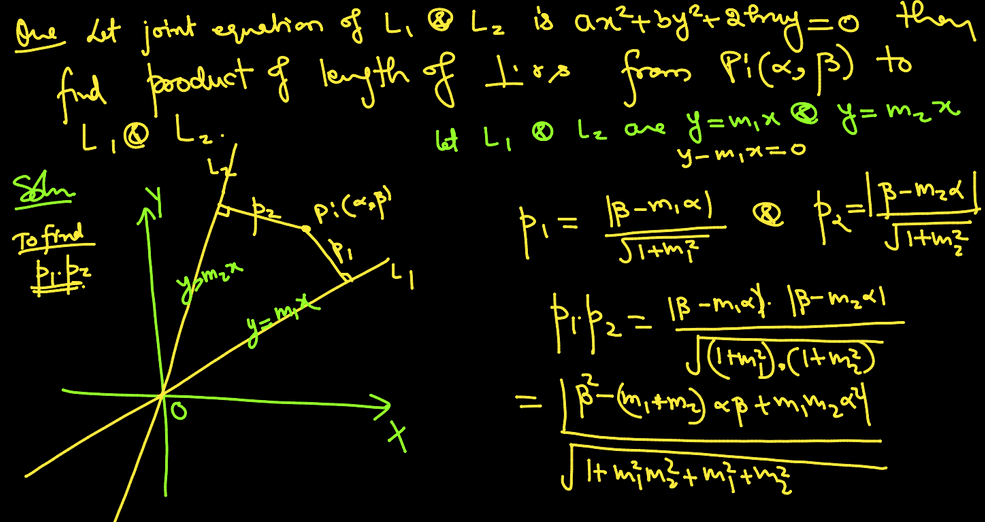 Que Let joint equation of L₁ & L₂ is ax²+by²+2hxy=0 then
find product of length of ⊥ rs from P:(α, β) to
L₁ & L₂.
Let L₁ & L₂ are y=m₁x & y=m₂x
y-m₁x=0
Soln
To find
p₁.p₂
Y
L₂
p₂
P:(α,β)
p₁
L₁
y=m₂x
y=m₁x
O
X
p₁ = |β-m₁α| / √(1+m₁²) & p₂= |β-m₂α| / √(1+m₂²)
p₁.p₂ = |β-m₁α|. |β-m₂α| / √((1+m₁²).(1+m₂²))
= |β²-(m₁+m₂) αβ+m₁m₂α²| / √(1+m₁²m₂²+m₁²+m₂²)